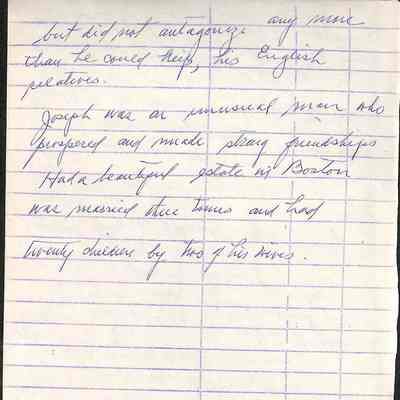 but did not antagonize any more
than he could help, his English
relatives.
Joseph was an unusual man who
prospered and made strong friendships
Had a beautiful estate in Boston
was married three times and had
twenty children by two of his wives.